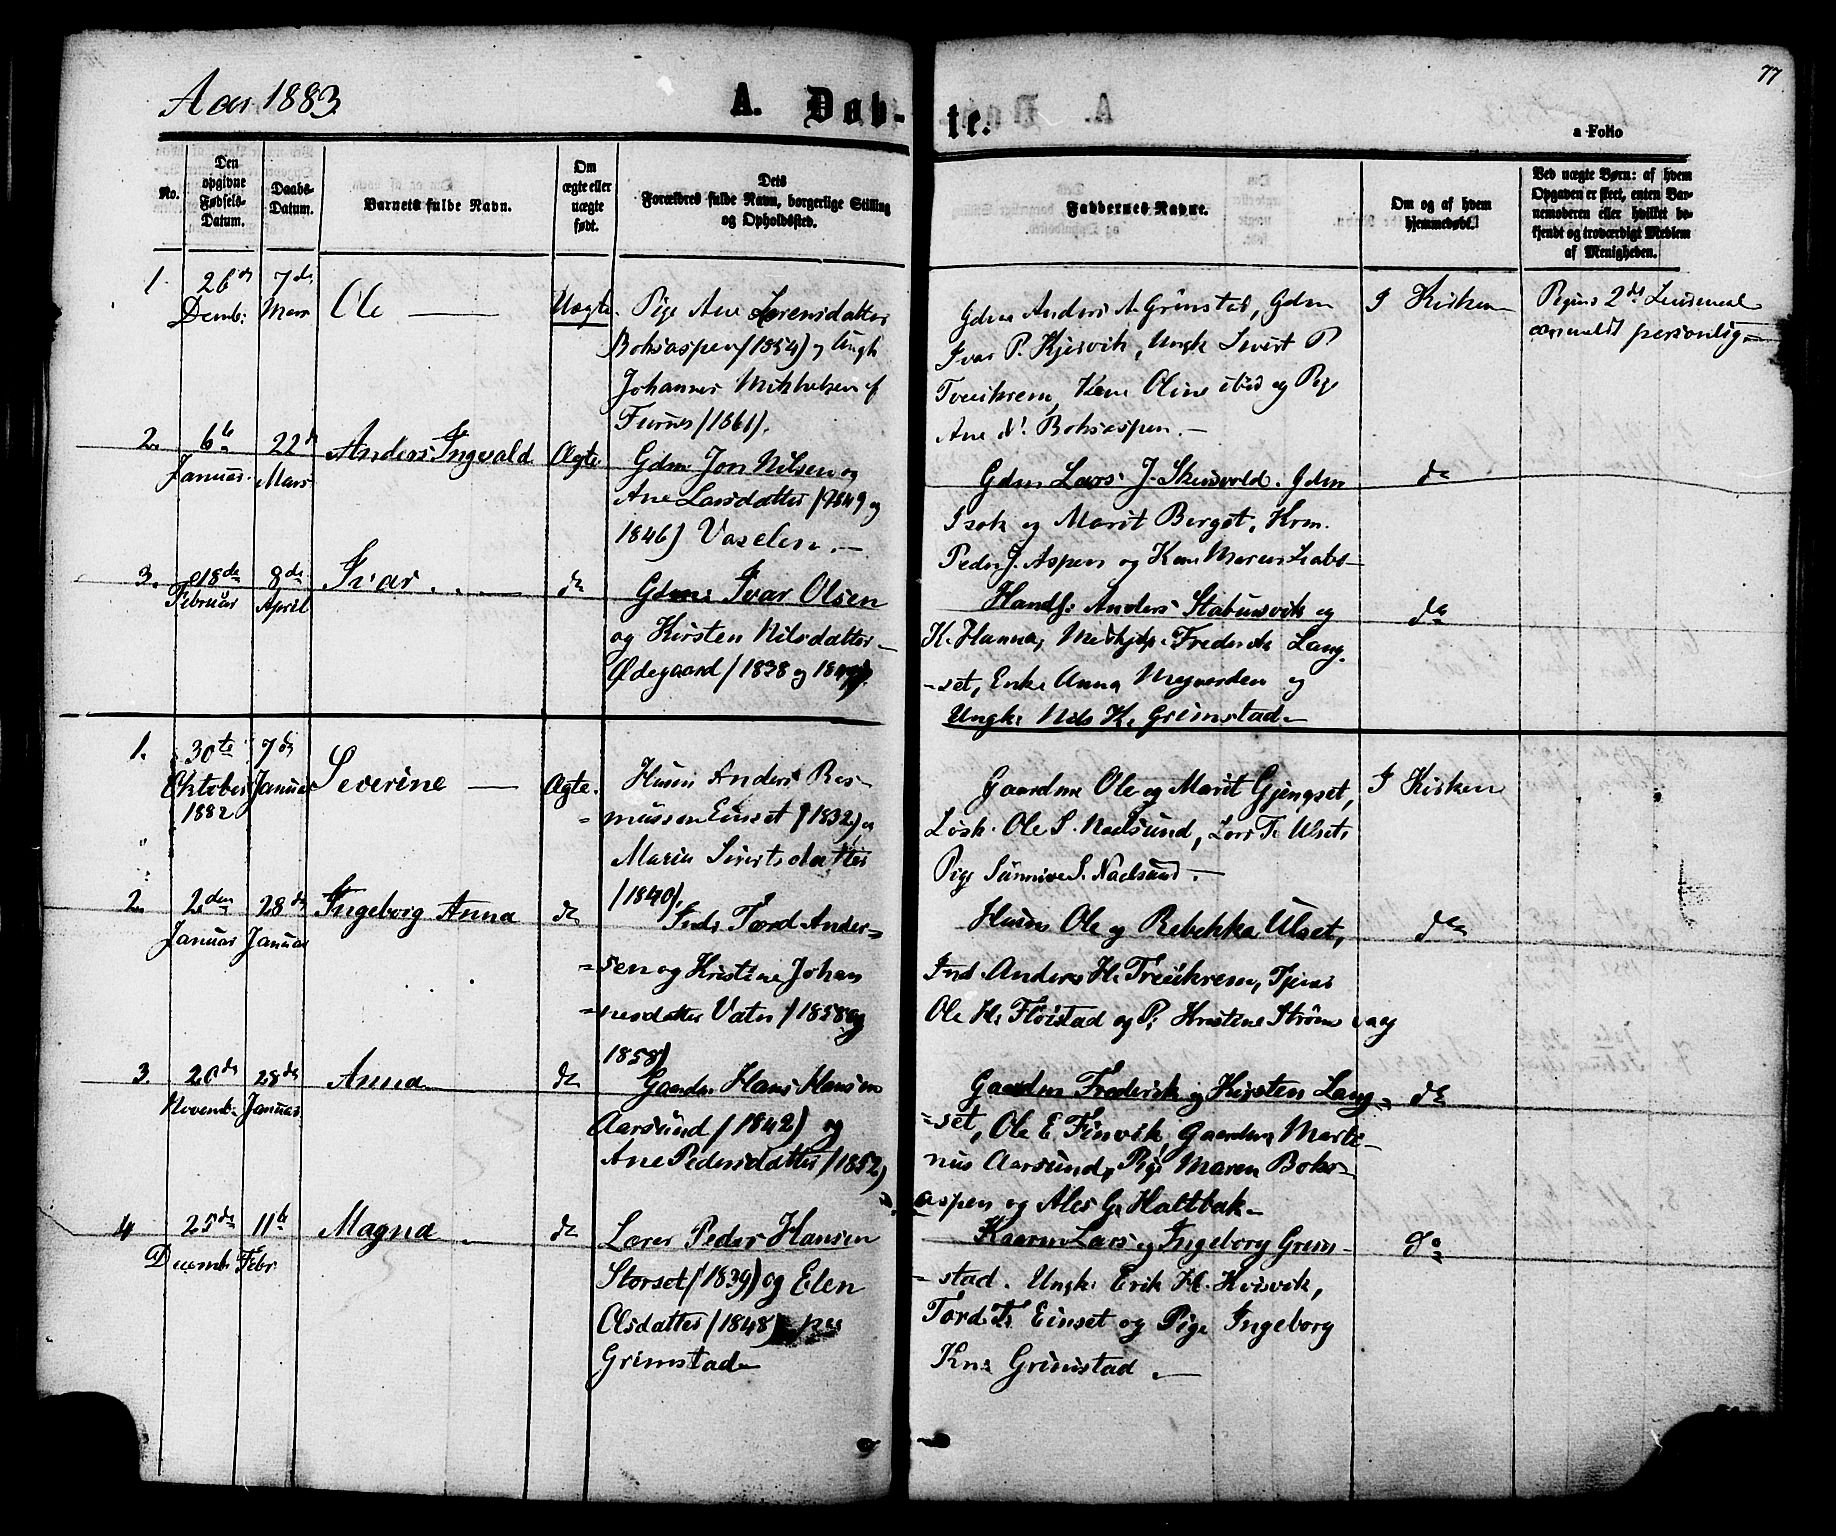 77
Aar 1883
A. Døb-te.
a Folio
No.
Den opgivne Fødsels-Datum.
Daabs-Datum.
Barnets fulde Navn.
Om ægte eller uægte født.
Dets Forældres fulde Navn, borgerlige Stilling og Opholdssted.
Faddernes Navne.
Om og af hvem hjemmedøbt.
Ved uægte Børn: af hvem Opgaven er skeet, enten Barnemoderen eller hvilket bekjendt og troværdigt Medlem af Menigheden.
1. 26de Decemb: 7de Mars Ole Uægte.
Pige Ane Lorensdatter
Bohsaspen (1854) og Ungk
Johannes Mikkelsen
Furnes (1861).
Gdm Anders A Grimstad, Gdm
Ivar P. Kjesvik, Ungk Sivert P
Tveikrem, Kone Oline ibid og Pige
Ane Bohsaspen.
I Kirken
Pigens 2det Leiermaal
anmeldt personlig
2. 6te Januar. 22de Mars Anders Ingvald Ægte
Gdm Jon Nilsen og
Ane Larsdatter (1849 og
1846) Vaselen.
Gdm Lars J. Skeisvold. Gdm
Isak og Marit Berget,
Peder J. Aspen og Kone Maren
do
3. 18de Februar 8de April Ivar do
Gdm: Ivar Olsen
og Kirsten Nilsdatter
Ødegaard (1838 og
Handl: Anders Stabursvik og
K. Hanna, Frederik Lang-
set, Enke Anna Myrvorden og
Ungk: Nils K. Grimstad
do
1. 30te Oktober 1882 7de Januar Severine Ægte.
Husm Anders Ras-
mussen Einset (1832) og
Maria Sivertsdatter
(1840).
Gaardm Ole og Marit Gjengset,
Løsk. Ole S. Nadsund, Lars T. Ulset
Pige Sunnive S. Nadsund.
I Kirken
2. 2den Januar 28de Januar Ingeborg Anna do
Inds Tord Ander-
sen og Kristine Johan
nesdatter Vatn (1858 og
1858)
Husm Ole og Rebekka Ulset,
Ind. Anders H. Treekrem, Tjener
Ole H. Fløistad og P. Kristine Strømsvaag
do
3. 20de Novemb. 28de Januar Anna do
Gaardm. Hans Hansen
Aarsund (1842) og
Ane Pedersdatter (1852)
Gaardm Frederik og Kirsten Lang-
set, Ole E Finvik, Gaardm Marti-
nus Aarsund, Pige Maren Bohs-
aspen og Ales G. Holtbak
do
4 25de Decemb. 11te Febr. Magna do
Lærer Peder Hansen
Storset (1839) og Elen
Olsdatter (1848)
Grimstad
Kaarm Lars og Ingeborg Grim-
stad. Ungk: Erik H. Kvisvik,
Tord T. Einset og Pige Ingeborg
Kn: Grimstad
do